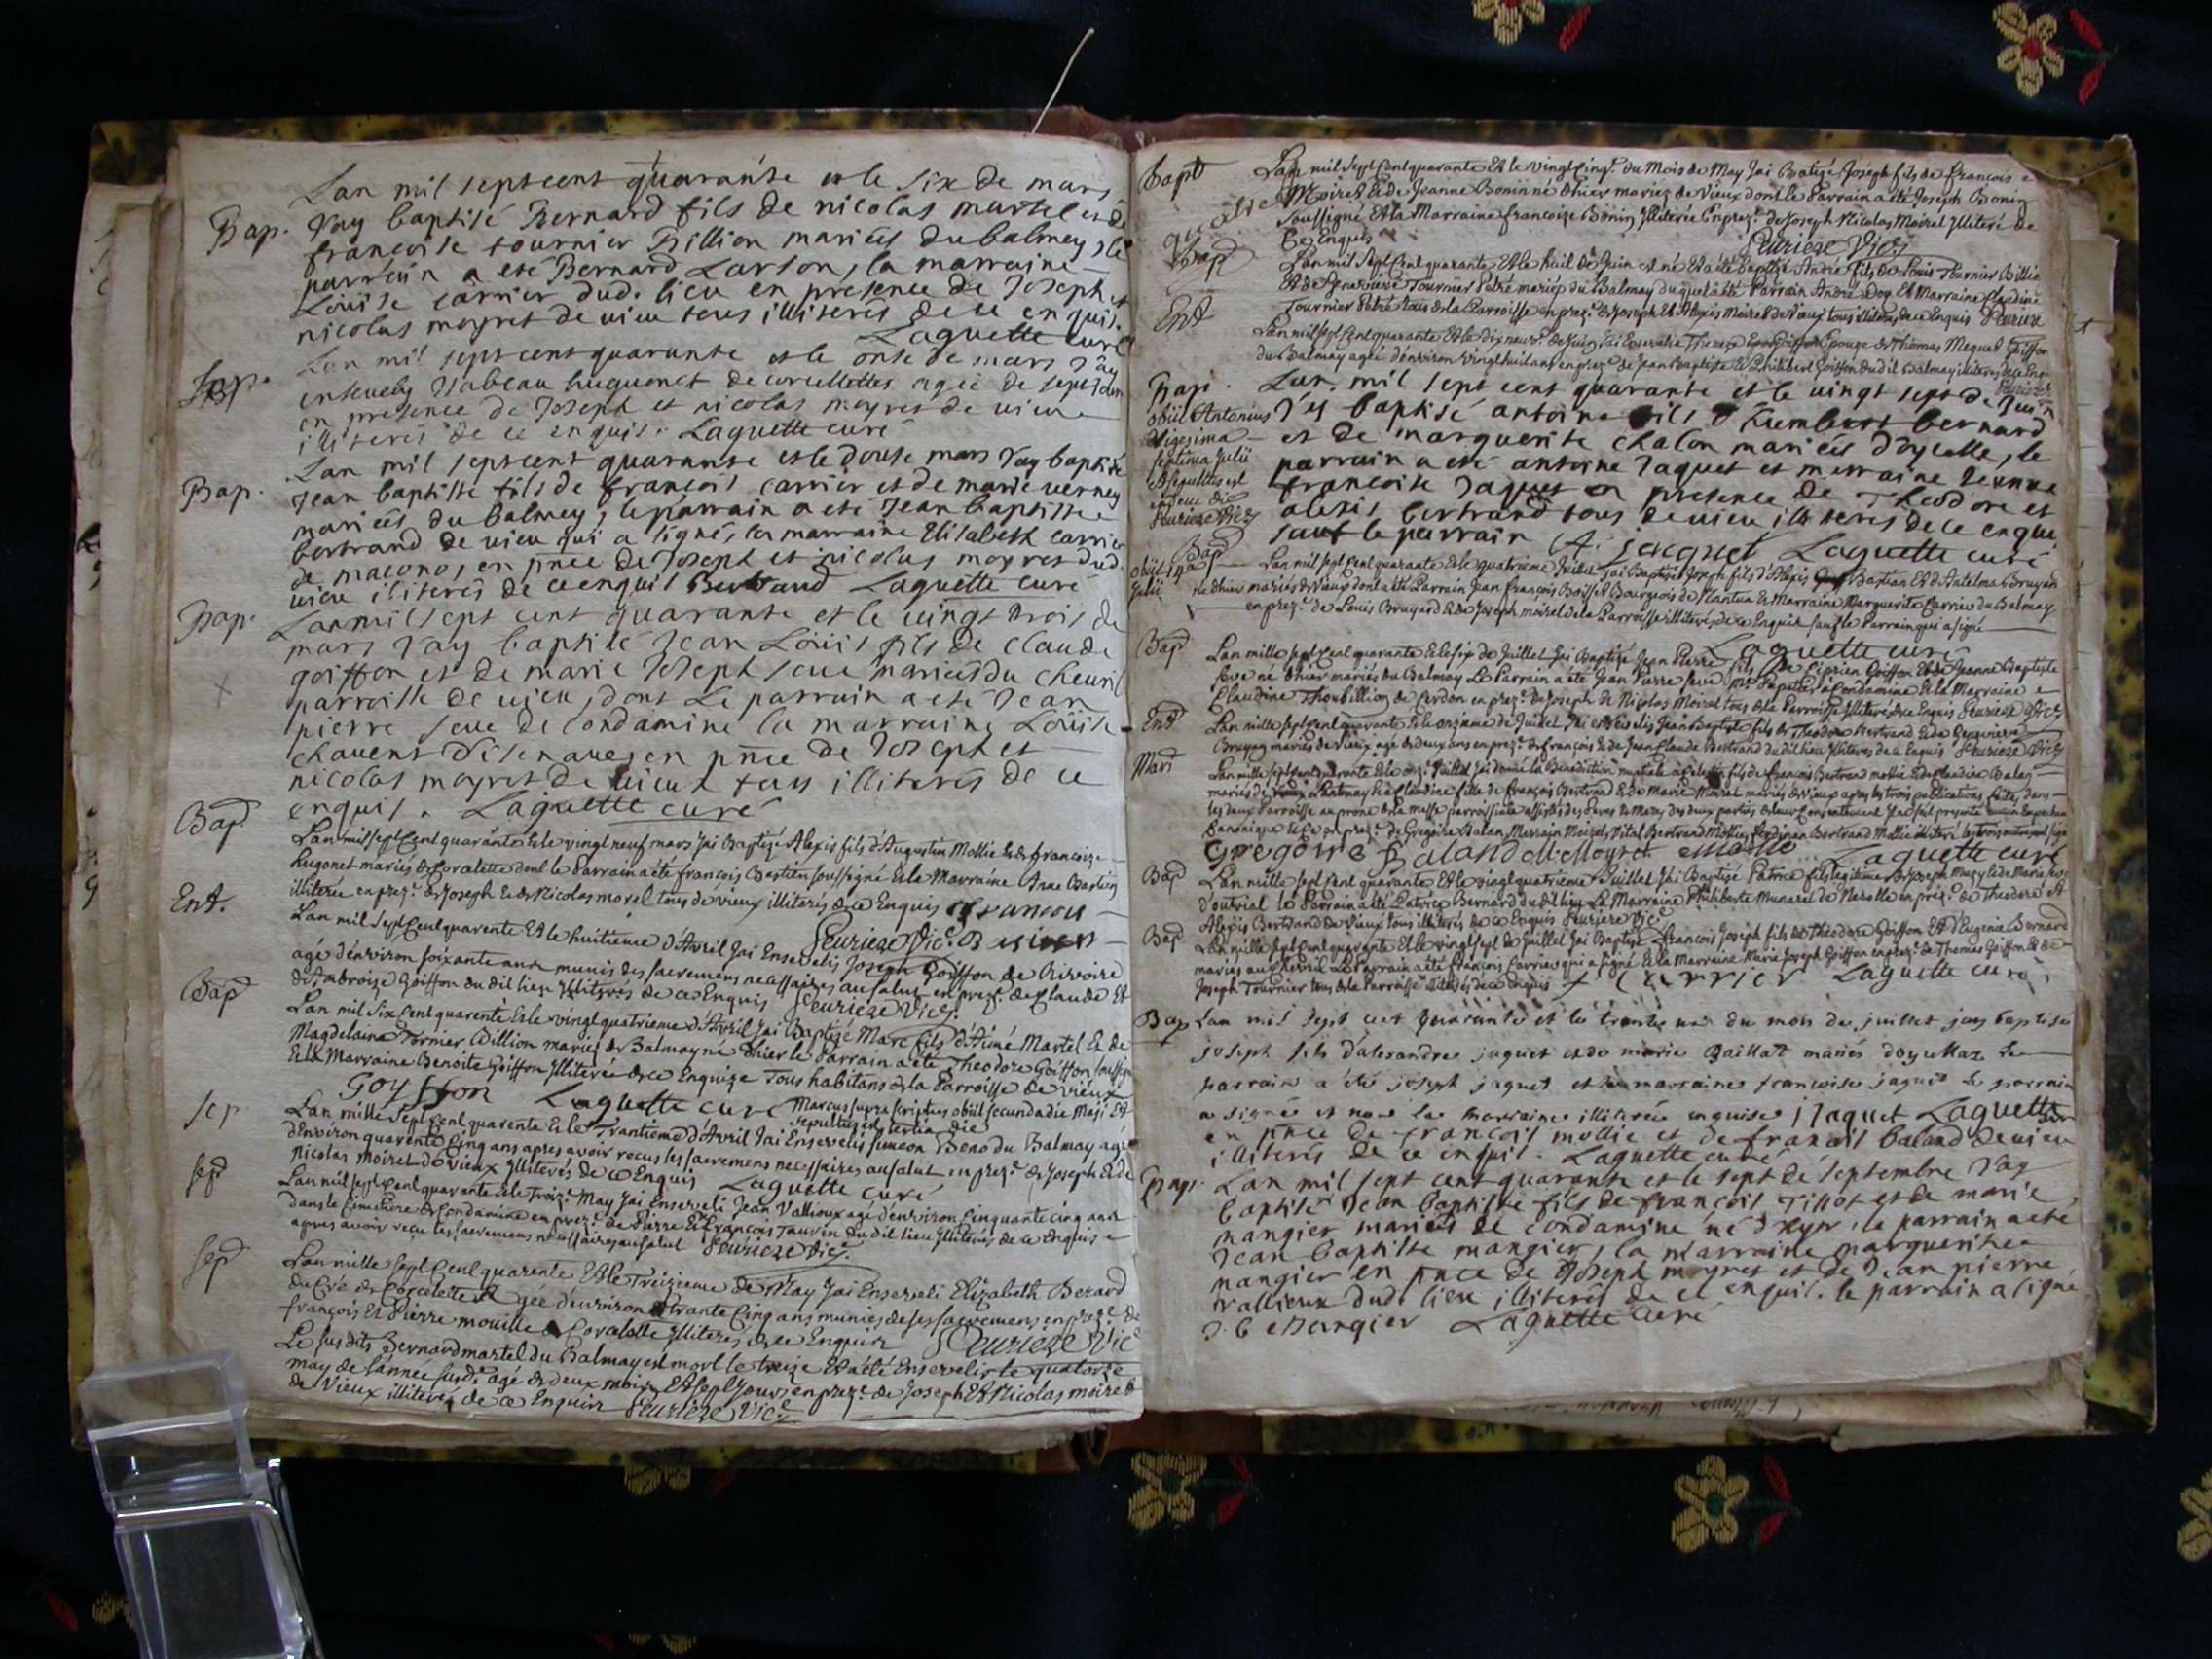 Lan mil sept cent quarante et le six de mars
Bap. Jay baptisé Bernard fils de nicolas martel et de
francoise tournier Billion mariés du balmey, le
parrain a esté Bernard Larson, la marraine
Louise carrier dud. lieu en presence de Joseph et
nicolas moyret de vieu tous illiterés de ce enquis.
Laguette curé
Lan mil sept cent quarante et le onse de mars J'ay
Sep. enseveli Isabeau huguonet de corcellettes agée de sept
en presence de Joseph et nicolas moyret de vieu
illiterés de ce enquis. Laguette curé
Lan mil sept cent quarante et le douse mars J'ay baptisé
Bap. Jean baptiste fils de françois carrier et de marie verney
mariés du balmey, le parrain a esté Jean baptiste
bertrand de vieu qui a signé, la marraine Elisabeth carrier
de macono, en pnce de Joseph et nicolas moyret dud.
vieu iliterés de ce enquis Bertrand Laguette curé
Bap. Lan mil sept cent quarante et le vingt trois de
mars J'ay baptisé Jean Loüis fils de Claude
goiffon et de marie Joseph seve mariés du cheuril
parroisse de vieu, dont le parrain a esté Jean
pierre seve de condamine la marraine Loüise
chavent d'Isenaves, en pnce de Joseph et
nicolas moyret de vieux tous illiterés de ce
enquis. Laguette curé
Bap Lan mil sept Cent quarante Et le vingt neuf mars Jai Baptizé Alexis fils d'Augustin Mollie Et de francoize
hugonet mariés de Corcelette dont le Parrain a été françois Bastien soussigné Et la Marraine Anne Bastien
illiterée en prez.e de Joseph Et de Nicolas morel tous de vieux illiterés de ce Enquis francois
Ent. Lan mil Sept Cent quarente Et le huitieme d'Avril Jai Ensevelis Joseph Goiffon de Rivoire
Peurieze Vic.e Bastien
agé d'environ soixante ans munis des sacremens necessaires au salut en prez.e de Claude Et
d'Ambroize Goiffon du dit lieu Illiterés de ce Enquis Peurieze Vic.e
Bap Lan mil Six Cent quarente Et le vingt quatrieme d'Avril Jai Baptizé Marc fils d'Aimé Martel Et de
Magdelaine Tornier Billion mariés du Balmay né d'hier le Parrain a été Theodore Goiffon soussigné
Et la Marraine Benoite Goiffon Illiterée de ce Enquize Tous habitans de la Parroisse de vieux
Goyffon Laguette curé Marcus supra scriptus obiit secunda die Maji Et
sepultus est tertia die
Sep Lan mille Sept Cent quarente Et le Trantieme d'Avril Jai Enseveli Simeon Beno du Balmay agé
d'Environ quarente Cinq ans apres avoir recus les sacremens necessaires au salut en prez.e de Joseph Et de
Nicolas Moiret de vieux Illiterés de ce Enquis Laguette curé
Sep Lan mil sept Cent quarante Et le Troiz.e May Jai Enseveli Jean Vallioux agé d'environ Cinquante cinq ans
dans le Cimetiere de Condamine en prez.e de Pierre Et françois Tauvin du dit lieu Illiterés de ce Enquis
apres avoir reçu les sacremens necessaires au salut Peurieze Vic.e
Sep Lan mille sept Cent quarente Et le Treizieme de May Jai Enseveli Elizabeth Berard
du Cré de Corcelette agée d'environ trante Cinq ans munies de ses sacremens en prez.e de
françois Et Pierre mouille de Corcelette Illiterés de ce Enquis Peurieze Vic.e
Le susdits Bernard martel du Balmay est mort le treize Et a été Enseveli le quatorze
may de l'année susd.e agé de deux mois Et sept Jours en prez.e de Joseph Et Nicolas moiret
de Vieux illiterés de ce Enquis Peurieze Vic.e
Bapt Lan mil Sept Cent quarante Et le vingt Cinq.e du Mois de May Jai Batizé Joseph fils de francois
Moiret Et de Jeanne Bonin né d'hier mariez de Vieux dont le Parrain a été Joseph Bonin
soussigné Et la Marraine francoize Bonin Illiterée En prez.e de Joseph Nicolas Moiret Illiteré de
Ce Enquis Peurieze Vic.e
Bap Lan mil Sept Cent quarante Et le huit de Juin est né Et a été baptizé André fils de Louis Tournier Billia
Et de Genevieve Tournier Patré mariés du Balmay du quel a été Parrain André Dog Et Marraine Claudine
Tournier Patré tous de la Parroisse en prez.e de Joseph Et Alexis Moiret de Vaux tous illiterés de ce Enquis Peurieze
Ent Lan mil sept Cent quarante Et le dix neuv.e de Juin Jai Enseveli Thereze Goiffon Epouze de Thomas Meguet Goiffon
du Balmay agée d'environ vingt huit ans en prez.e de Jean Baptiste Et Philibert Goiffon du dit Balmay illiterés de ce Enq.
Peurieze
Bap. Lan mil sept cent quarante et le vingt sept de Juin
obiit Antonius J'ey baptisé antoine fils d'humbert bernard
vigesima et de marguerite chalon mariés d'oyselle, le
septima Julii parrain a esté antoine Jaquet et marraine Jeanne
et sepultus est francoise Jaquet en presence de Theodore et
eadem die alexis bertrand tous de vieu illiterés de ce enquis
Peurieze Vic.e sauf le parrain A. jacquet Laguette curé
Bap Lan mil sept Cent quarante Et le quatrieme Juillet Jai Baptizé Joseph fils d'Alexis Bastian Et d'Antelma Bruyard
obiit 19a Julii né d'hier mariés de Vieux dont a été Parrain Jean François Boisset Bourgeois de Nantua Et Marraine Marguerite Carrier du Balmay
en prez.e de Louis Bruyard Et de Joseph moiret de la Parroisse illiterés de ce Enquis sauf le Parrain qui a signé
Laguette curé
Bap Lan mille sept Cent quarante Et le six de Juillet Jai Baptizé Jean Pierre fils de Ciprien Goiffon Et de Jeanne Baptiste
Seve né d'hier mariés du Balmay Le Parrain a été Jean Pierre Seve Mr Papetier a Condamine Et la Marraine
Claudine Thoubillion de Cerdon en prez.e de Joseph Et Nicolas Moiret tous de la Parroisse Illiterés de ce Enquis Peurieze Vic.e
Ent Lan mille sept Cent quarante Et le onzieme de Juillet Jai enseveli Jean Baptiste fils de Theodore Bertrand Et de Genevieve
Bruyag mariés de Vieux agé de deux ans en prez.e de François Et de Jean Claude Bertrand du dit lieu Illiterés de ce Enquis Peurieze Vic.e
Mari Lan mille sept Cent quarante Et le onz.e Juillet Jai donné la Benediction nuptiale a Celestin fils de francois Bertrand mollie Et de Claudine Balan
mariés de Chatenay Et a Claudine fille de François Bertrand Et de Marie Moiret mariés de Vieux apres les trois publications faites dans
les deux Parroisse au prone de la messe parroissiale
Canonique le tout en prez.e de Gregoire Balan, Merrain Moiret, Vital Bertrand Mollie, Ferdinan Bertrand Mollie illiteré les trois autres ont signé
Gregoire Baland M. Moyret Mollie Laguette curé
Bap Lan mille sept Cent quarante Et le vingt quatrieme Juillet Jai Baptizé Patrice fils legitime de Joseph Muzy Et de Marie
d'outriat le Parrain a été Patrice Bernard du dit lieu La Marraine Philiberte Munaret de Nerolle en prez.e de Theodore Et
Alexis Bertrand de Vieux tous illiterés de ce Enquis Peurieze Vic.e
Bap Lan mille sept Cent quarante Et le vingt sept de Juillet Jai Baptizé François Joseph fils de Theodore Goiffon Et d'Eugenie Bernard
mariés au Chevril Le Parrain a été François Carrier qui a signé Et la Marraine Marie Joseph Goiffon en prez.e de Thomas Goiffon Et de
Joseph Tournier tous de la Parroisse illiterés de ce Enquis f carrier Laguette curé
Bap Lan mil sept cent quarante et le trente un du mois de juillet jay baptisé
joseph fils d'alexandre jaquet et de marie Baillat mariés d'oyselle le
parrain a été joseph jaquet et la marraine francoise jaquet le parrain
a signé et non la marraine illiterée enquise j Jaquet Laguette
en pnce de françois mollie et de francois baland de vieu
illiterés de ce enquis. Laguette curé
Bap. Lan mil sept cent quarante et le sept de septembre J'ay
baptisé Jean baptiste fils de françois Tillot et de marie
mangier mariés de condamine né d'hyer, le parrain a esté
Jean baptiste mangier, la marraine marguerite
mangier en pnce de Joseph moyret et de Jean pierre
vallieux dud. lieu illiterés de ce enquis. le parrain a signé
J. b. Mangier Laguette curé